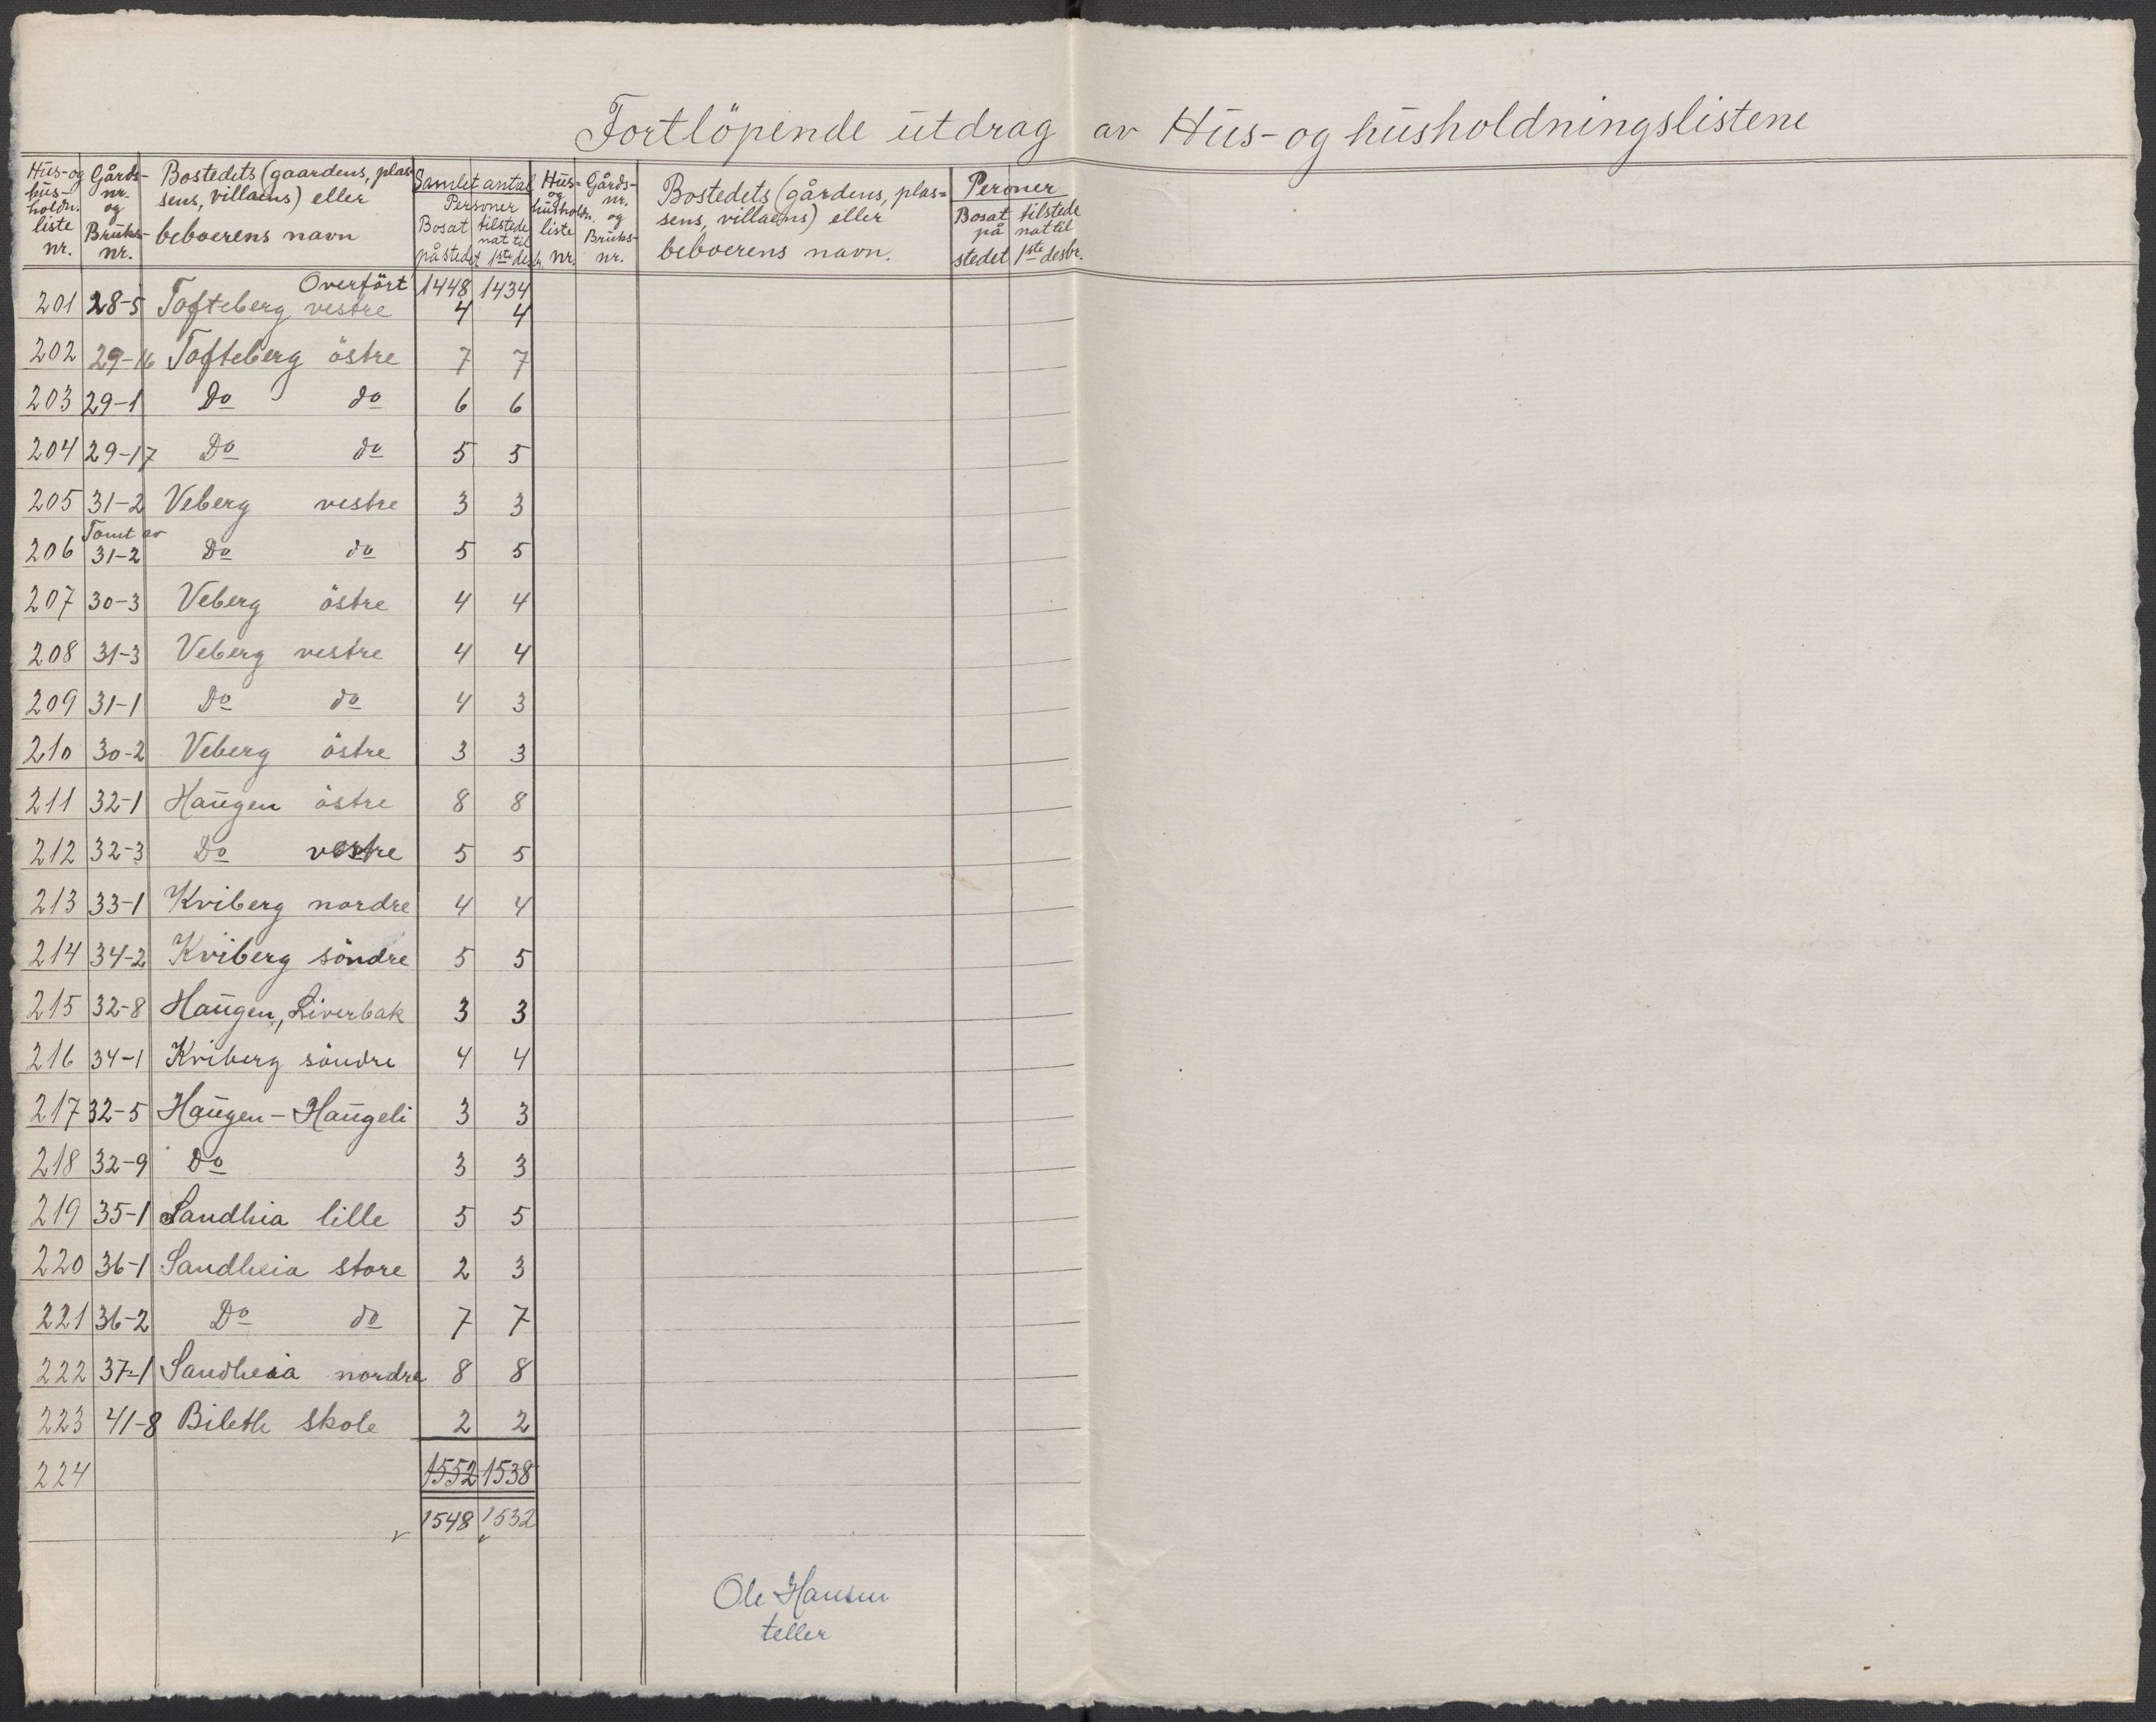 Fortlöpende utdrag av Hus- og husholdningslistene
Hus- og hus-holdn. liste nr. | Gårds- nr. og Bruks- nr. | Bostedets (gaardens, plas- sens, villaens) eller beboerens navn | Samlet antal Personer Bosat på stedet | tilstede nat til 1ste desbr. | Hus- og husholdn. liste nr. | Gårds- nr. og Bruks- nr. | Bostedets (gårdens, plas= sens, villaens) eller beboerens navn. | Peroner Bosat på stedet | tilstede nat til 1ste desbr.
Overfört 1448 1434
201 28-5 Tofteberg vestre 4 4
202 29-16 Tofteberg östre 7 7
203 29-1 Do do 6 6
204 29-17 Do do 5 5
205 31-2 Veberg vestre 3 3
206 Tomt av 31-2 Do do 5 5
207 30-3 Veberg östre 4 4
208 31-3 Veberg vestre 4 4
209 31-1 Do do 4 3
210 30-2 Veberg östre 3 3
211 32-1 Haugen östre 8 8
212 32-3 Do vestre 5 5
213 33-1 Kviberg nordre 4 4
214 34-2 Kviberg söndre 5 5
215 32-8 Haugen, Liverbak 3 3
216 34-1 Kviberg söndre 4 4
217 32-5 Haugen - Haugeli 3 3
218 32-9 Do 3 3
219 35-1 Sandhia lille 5 5
220 36-1 Sandheia store 2 3
221 36-2 Do do 7 7
222 37-1 Sandheia nordre 8 8
223 41-8 Bileth skole 2 2
224 1552 1538
1548 1532
Ole Hansen
teller